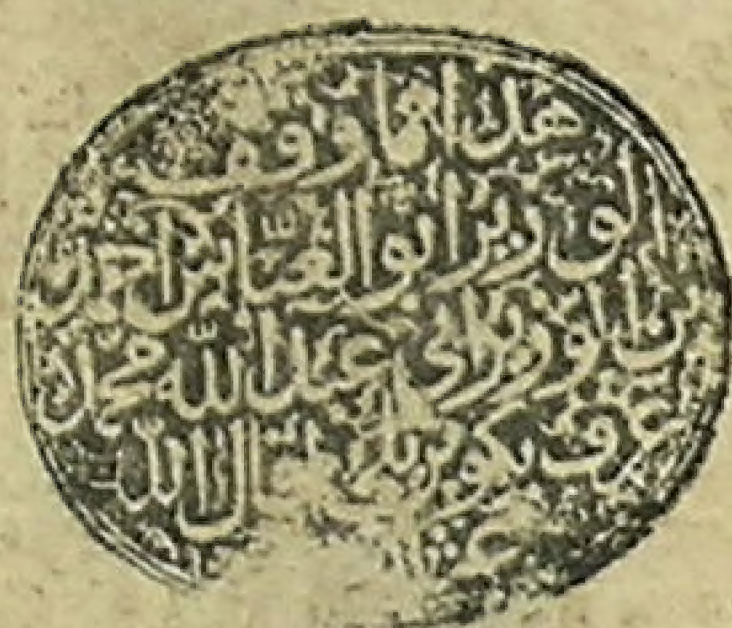 هذا مما وقف
الوزير ابو العباس احمد
بن الوزير ابي عبد الله محمد
عرف بكوبريلي الله